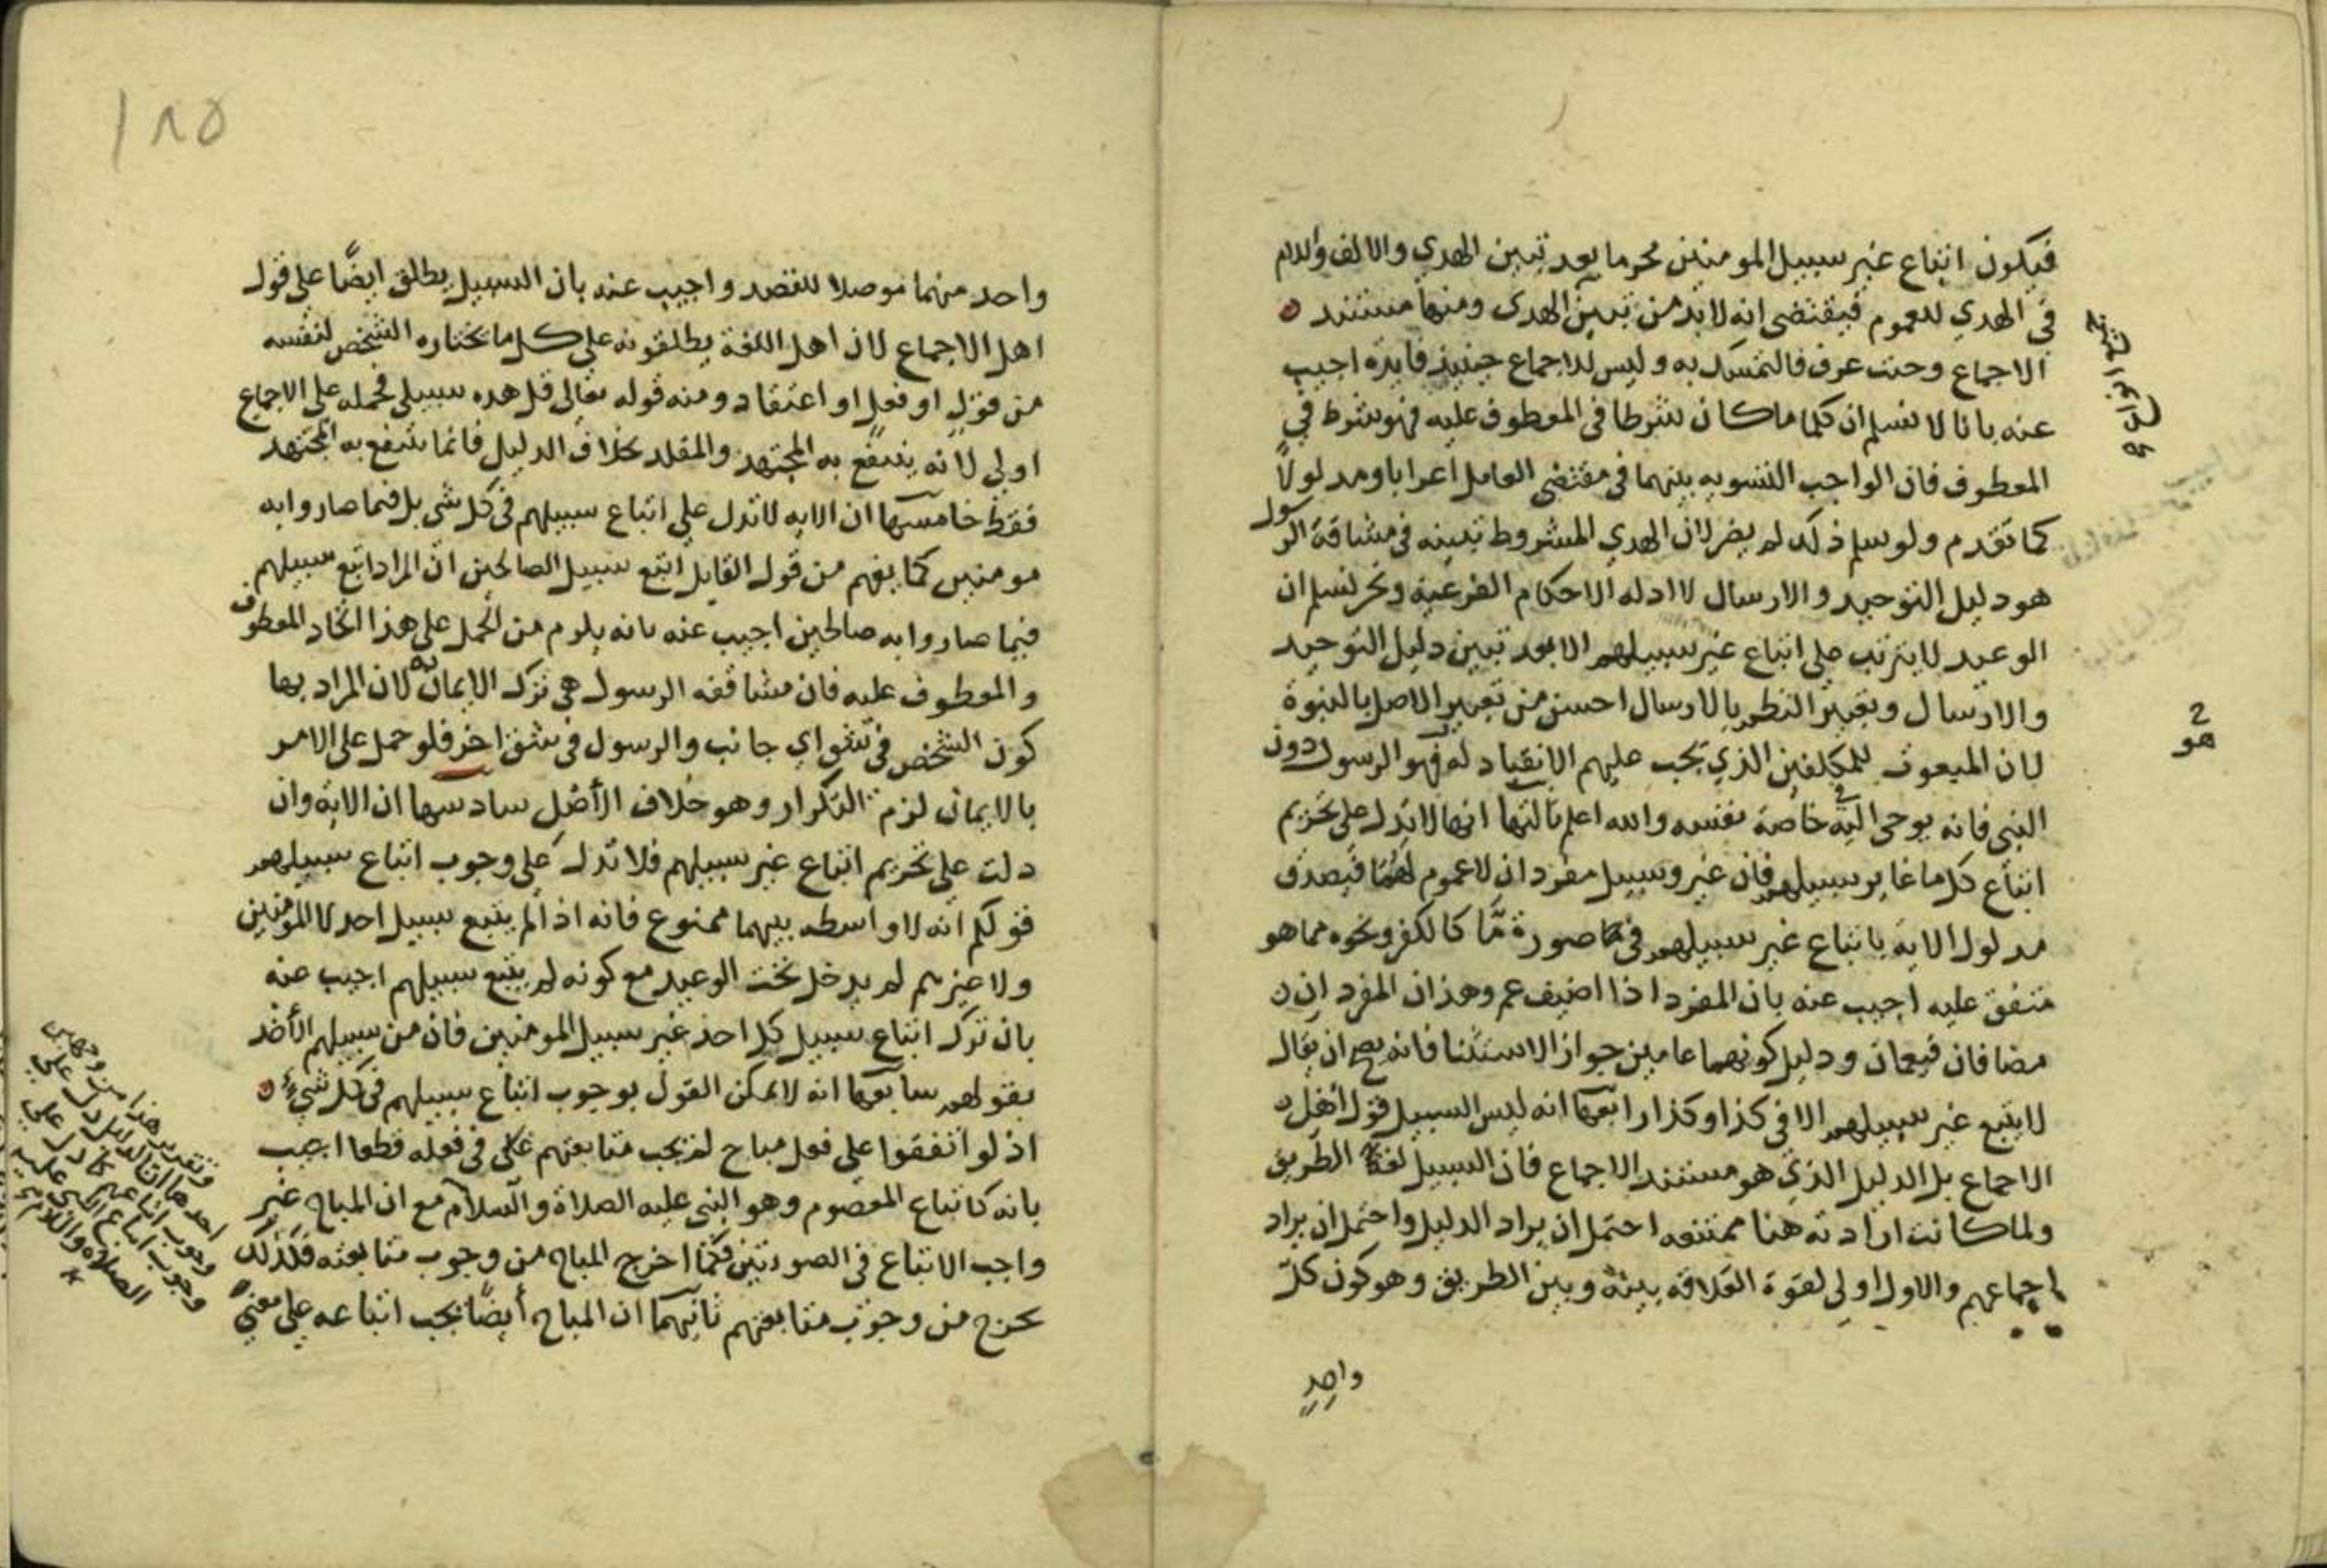 فيكون اتباع غير سبيل المومنين محرما بعد تبين الهدي والالف واللام
في الهدي للعموم فيقتضي انه لابد من تبين الهدى ومنها مستند
الاجماع وحيث عرف فالتمسك به وليس للاجماع حينيذ فايدة اجيب
عنه بانا لا نسلم ان كلما ما كان شرطا في المعطوف عليه فهو شرط في
المعطوف فان الواجب التسويه بينهما في مقتضى العامل اعرابا ومدلولا
كما تقدم ولو سلم ذلك لم يضر لان الهدي المشروط تبينه في مشاقة الرسول
هو دليل التوحيد والارسال لا ادله الاحكام الفرعية ونحن نسلم ان
الوعيد لا يترتب على اتباع غير سبيلهم الا بعد تبين دليل التوحيد
والارسال وتعبير النظم بالارسال احسن من تعبير الاصل بالنبوة
لان المبعوث للمكلفين الذي يجب عليهم الانقياد له فهو الرسول دون
هو
النبي فانه يوحى اليه خاصة نفسه والله اعلم ثالثها انها لا تدل على تحريم
اتباع كل ما غاير سبيلهم فان غير وسبيل مفردان لا عموم لهما فيصدق
مدلول الاية باتباع غير سبيلهم في صورة ما كالكفر ونحوه مما هو
متفق عليه اجيب عنه بان المفرد اذا اضيف عم وهذان المفردان
مضافان فيعمان ودليل كونهما عامين جواز الاستثنا فانه يصح ان يقال
لا يتبع غير سبيلهم الا في كذا وكذا رابعها انه ليس السبيل قول اهل
الاجماع بل الدليل الذي هو مستند الاجماع فان السبيل لغة الطريق
ولما كانت ارادته هنا ممتنعه احتمل ان يراد الدليل واحتمل ان يراد
اجماعهم والاول اولى لقوة العلاقه بينه وبين الطريق وهو كون كل
واحد
١٨٥
واحد منهما موصلا للقصد واجيب عنه بان السبيل يطلق ايضًا على قول
اهل الاجماع لان اهل اللغة يطلقونه على كل ما يختاره الشخص لنفسه
من قول او فعل او اعتقاد ومنه قوله تعالى قل هذه سبيلي فحمله على الاجماع
اولى لانه ينتفع به المجتهد والمقلد بخلاف الدليل فانما ينتفع به المجتهد
فقط خامسها ان الايه لا تدل على اتباع سبيلهم في كل شي بل فيما صاروا به
مومنين كما يفهم من قول القايل اتبع سبيل الصالحين ان المراد اتبع سبيلهم
فيما صاروا به صالحين اجيب عنه بانه يلزم من الحمل على هذا اتحاد المعطوف
والمعطوف عليه فان مشاققه الرسول هي ترك الايمان به لان المراد بها
كون الشخص في شق اي جانب والرسول في شق اخر فلو حمل على الامر
بالايمان لزم التكرار وهو خلاف الأصل سادسها ان الاية وان
دلت على تحريم اتباع غير سبيلهم فلا تدل على وجوب اتباع سبيلهم
قولكم انه لا واسطه بينهما ممنوع فانه اذا لم يتبع سبيل احد لا المومنين
ولا غيرهم لم يدخل تحت الوعيد مع كونه لم يتبع سبيلهم اجيب عنه
بان ترك اتباع سبيل كل احد غير سبيل المومنين فان من سبيلهم الأخذ
بقولهم سابعها انه لا يمكن القول بوجوب اتباع سبيلهم في كل شيء
اذ لو اتفقوا على فعل مباح لم يجب متابعتهم على في فعله قطعا اجيب
بانه كاتباع المعصوم وهو النبي عليه الصلاة والسلام مع ان المباح غير
واجب الاتباع في الصورتين فكما اخرج المباح من وجوب متابعته فكذلك
يخرج من وجوب متابعتهم ثانيهما ان المباح أيضًا يجب اتباعه على معنى
وتقرير هذا من وجهين
احدهما ان الدليل دل على
وجوب اتباعهم كما دل على
وجوب اتباع النبي عليه
الصلاة والسلام